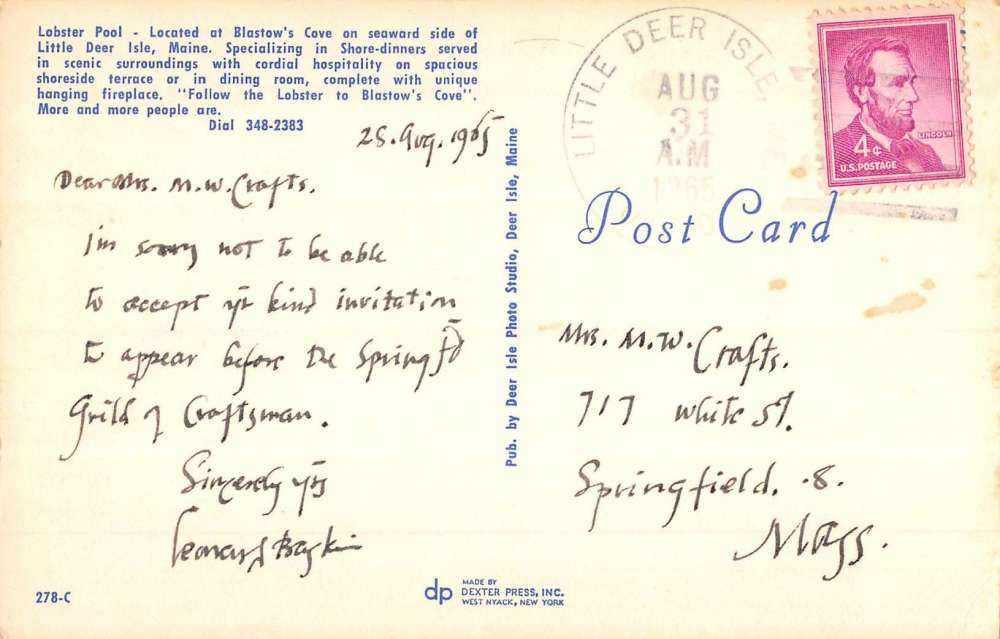 Lobster Pool - Located at Blastow's Cove on seaward side of
Little Deer Isle, Maine. Specializing in Shore-dinners served
in scenic surroundings with cordial hospitality on spacious
shoreside terrace or in dining room, complete with unique
hanging fireplace. "Follow the Lobster to Blastow's Cove".
More and more people are.
Dial 348-2383
28. Aug. 1965
Dear Mrs. M.W. Crafts.
I'm sorry not to be able
to accept yr kind invitation
to appear before the Springfd
Guild of Craftsman.
Sincerely yrs
Leonard Baskin
278-C
Pub. by Deer Isle Photo Studio, Deer Isle, Maine
dp
MADE BY
DEXTER PRESS, INC.
WEST NYACK, NEW YORK
LITTLE DEER ISLE,
AUG
31
A.M
1965
LINCOLN
4¢
U.S. POSTAGE
Post Card
Mrs. M.W. Crafts.
717 White St.
Springfield. 8.
Mass.